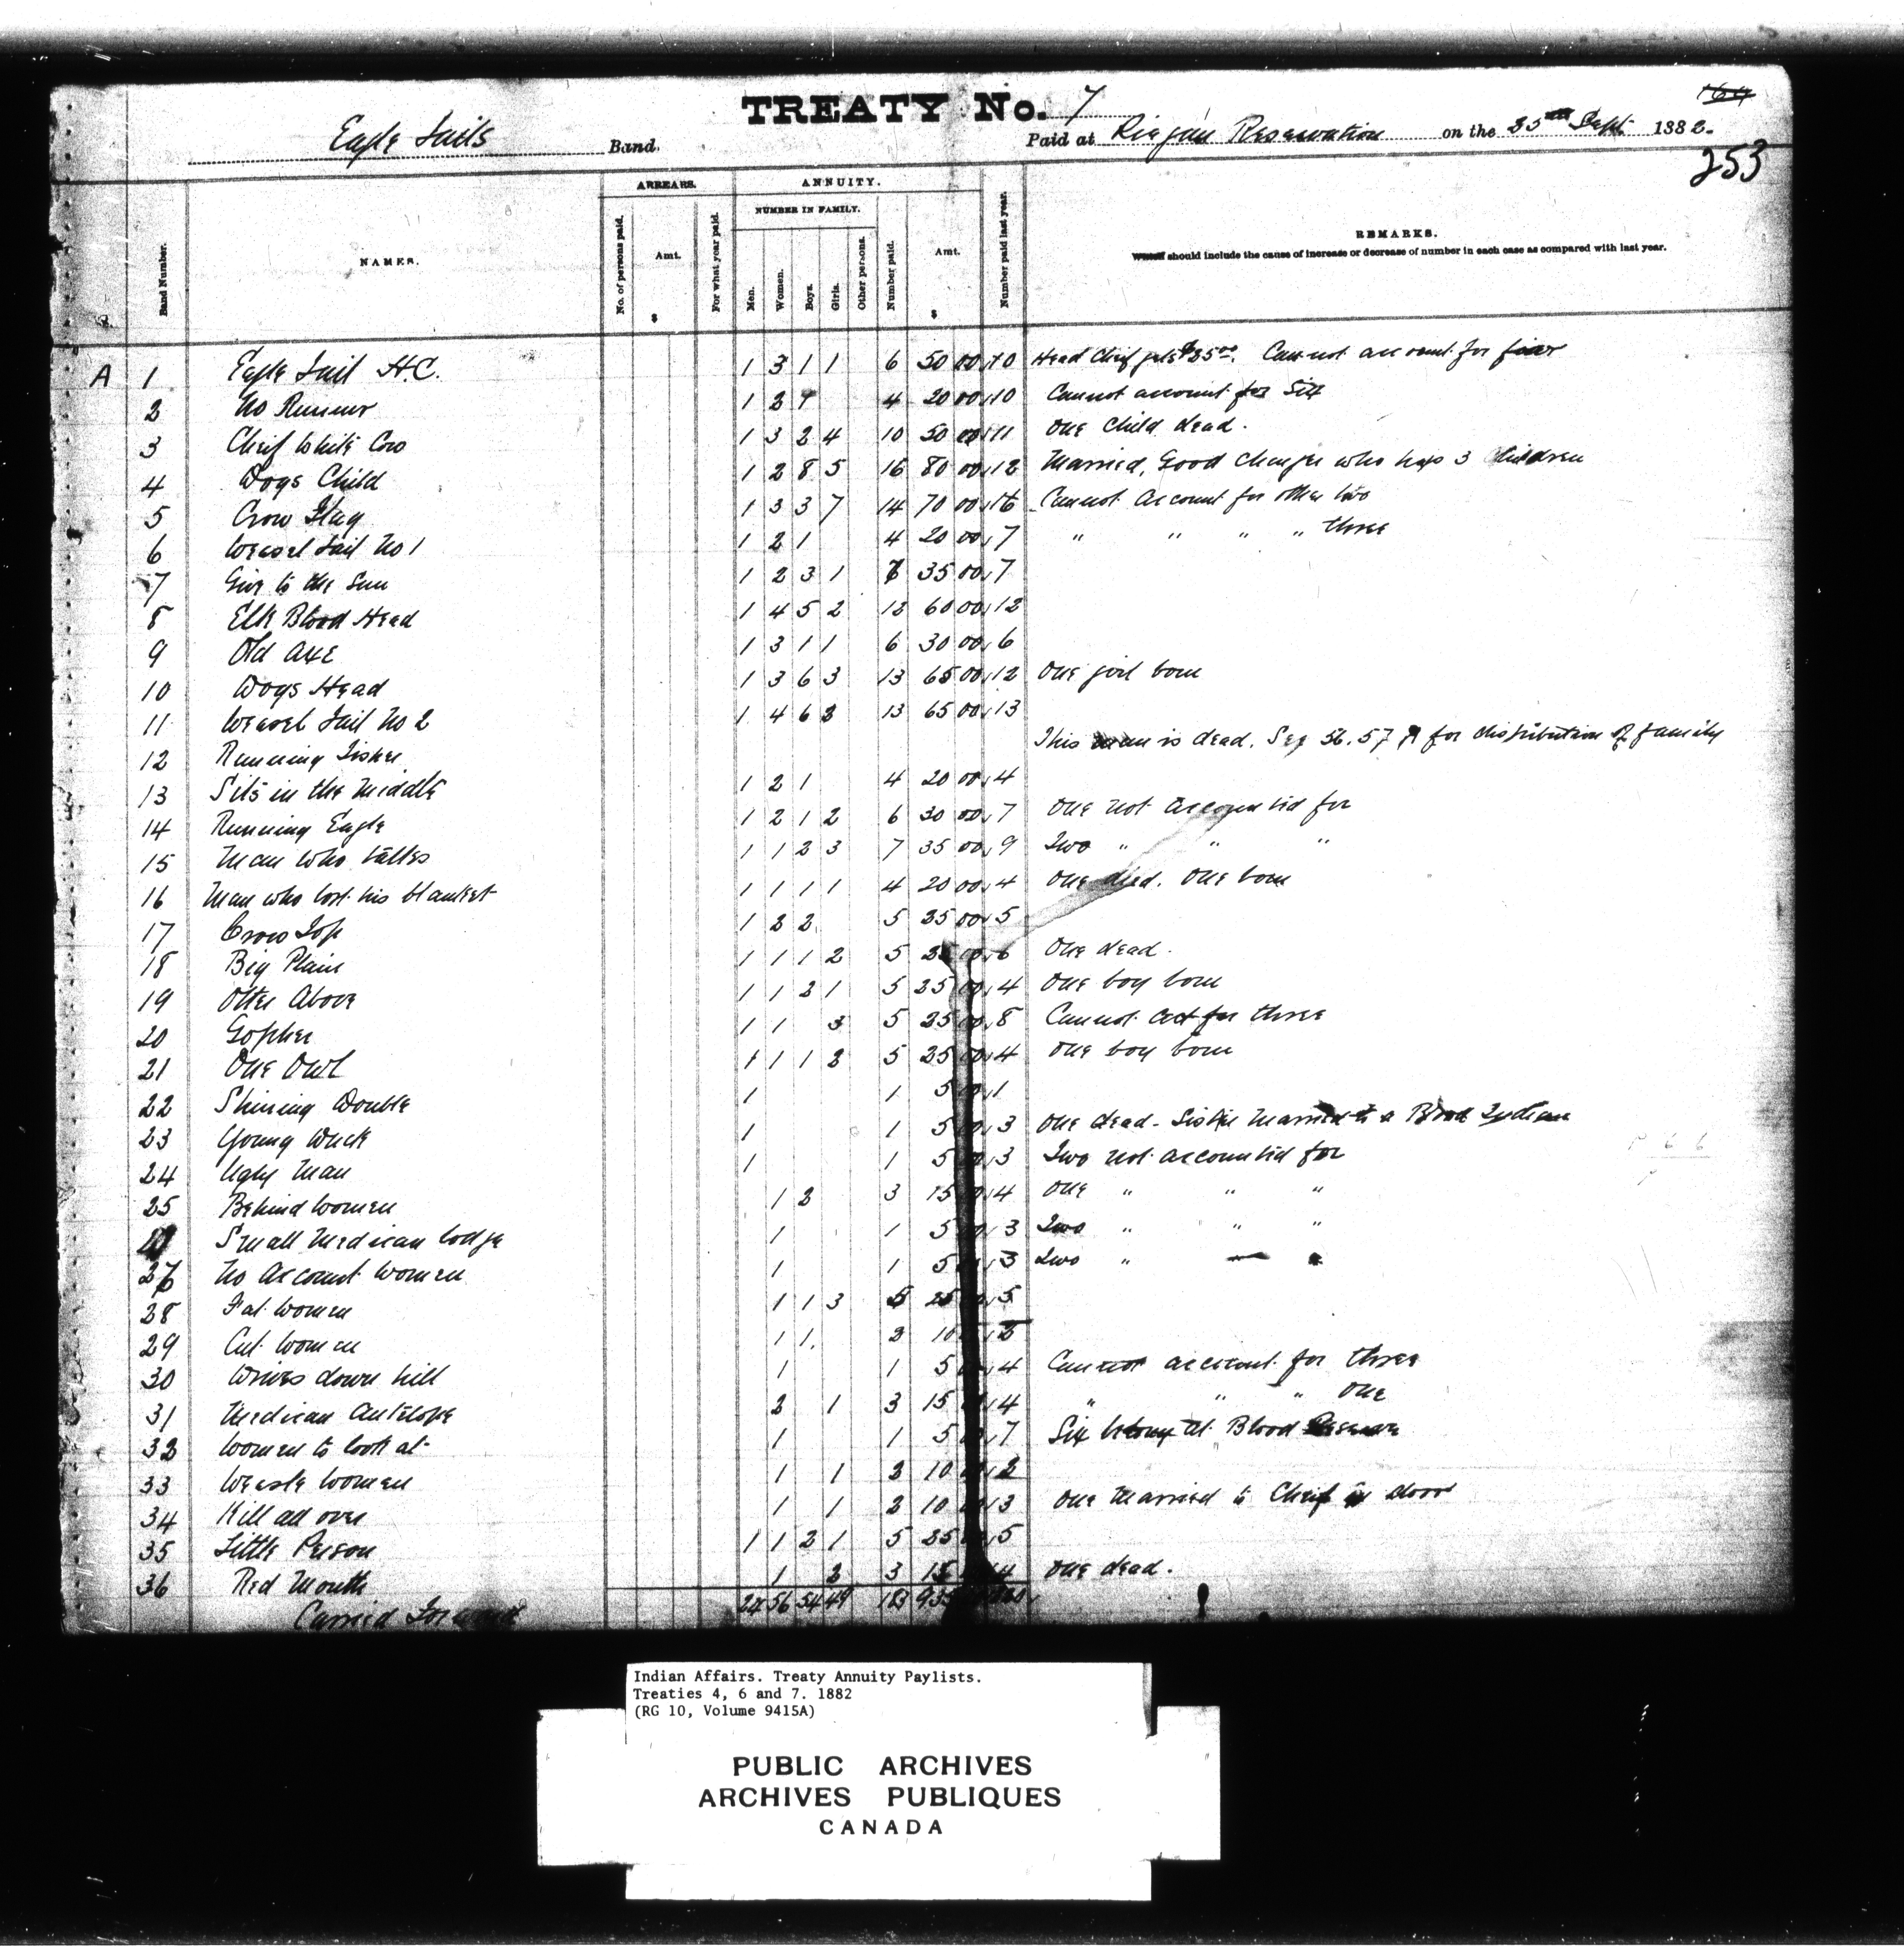 164
TREATY No. 7
Eagle Tails Band. Paid at Piegan Reservation on the 25th Sept. 1882.
253
ARREARS. ANNUITY.
NUMBER IN FAMILY.
Band Number. NAMES. No. of persons paid. Amt. $ For what year paid. Men. Women. Boys. Girls. Other persons. Number paid. Amt. $ Number paid last year. REMARKS.
should include the cause of increase or decrease of number in each case as compared with last year.
A 1 Eagle Tail H.C. 1 3 1 1 6 50 00 10 Head Chief gets $25.00. Cannot account for four
2 No Runner 1 2 1 4 20 00 10 Cannot account for Six
3 Cheif White Cow 1 3 2 4 10 50 00 11 One Child dead.
4 Dogs Child 1 2 8 5 16 80 00 12 Married, Good Charger who has 3 Children
5 Crow Flag 1 3 3 7 14 70 00 16 Cannot Account for other two
6 Weasel Tail No 1 1 2 1 4 20 00 7 " " " " three
7 Give to the Sun 1 2 3 1 7 35 00 7
8 Elk Blood Head 1 4 5 2 12 60 00 12
9 Old Axe 1 3 1 1 6 30 00 6
10 Dogs Head 1 3 6 3 13 65 00 12 One girl born
11 Weasel Tail No 2 1 4 6 2 13 65 00 13
12 Running Fisher This man is dead. See 56. 57 A for distribution of family
13 Sits in the Middle 1 2 1 4 20 00 4
14 Running Eagle 1 2 1 2 6 30 00 7 One not accounted for
15 Man who talks 1 1 2 3 7 35 00 9 Two " " "
16 Man who lost his blanket 1 1 1 1 4 20 00 4 One died. One born
17 Crow Top 1 2 2 5 25 00 5
18 Big Plain 1 1 1 2 5 25 00 6 One dead.
19 Otter Above 1 1 2 1 5 25 00 4 One boy born
20 Gopher 1 1 3 5 25 00 8 Cannot act for three
21 One Owl 1 1 1 2 5 25 00 4 One boy born
22 Shining Double 1 1 5 1
23 Young Duck 1 1 5 3 One dead - Sister Married to a Blood Indian
24 Ugly Man 1 1 5 3 Two not accounted for
25 Behind Women 1 2 3 15 4 One " " "
Small Medican Lodge 1 1 5 3 Two " " "
27 No Account Women 1 1 5 3 Two "
28 Fat Women 1 1 3 5 25 5
29 Cut Women 1 1 2 10 2
30 Drives down hill 1 1 5 4 Cannot account for three
31 Medican Antelope 2 1 3 15 4 " " " One
32 Women to look at 1 1 5 7 Six belong at Blood Reserve
33 Weasle Women 1 1 2 10 2
34 Kill all over 1 1 2 10 3 One Married to Cheif door
35 Little Person 1 1 2 1 5 25 5
36 Red Mouth 1 2 3 15 4 One dead.
Carried Forward 24 56 54 49 183 935
Indian Affairs. Treaty Annuity Paylists.
Treaties 4, 6 and 7. 1882
(RG 10, Volume 9415A)
PUBLIC ARCHIVES
ARCHIVES PUBLIQUES
CANADA